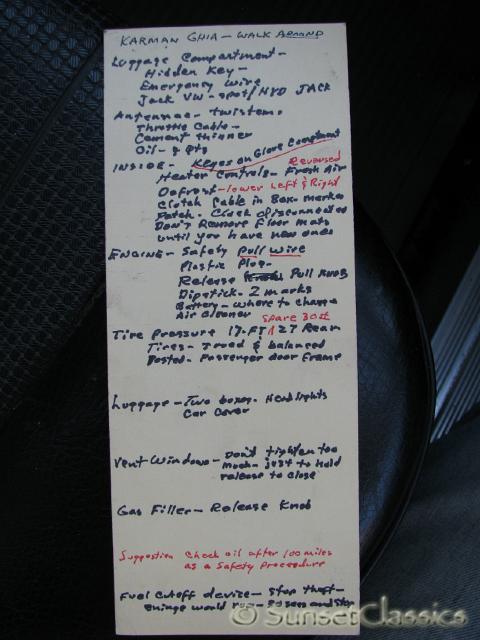 KARMAN GHIA - WALK AROUND
Luggage Compartment -
Hidden Key -
Emergency wire
Jack VW - spot/HYD JACK
Antennae - twistem.
Throttle Cable -
Cement thinner
Oil - 2 qts
INSIDE - Keyes on Glove Compartment
Reversed
Heater Controls - Fresh Air
Defrost - lower Left & Right
Clutch Cable in Box - marked
Patch - Clock disconnected
Don't Remove Floor mats
until you have new ones
ENGINE - Safety Pull wire
Plastic Plug -
Release Pull Knob
Dipstick - 2 marks
Battery - where to charge
Air Cleaner
spare 30 lbs
Tire Pressure 17-FT 27 Rear
Tires - Trued & balanced
Posted - Passenger door Frame
Luggage - Two boxes - Headlights
Car Cover
Vent Windows - Don't tighten too
much - just to hold
release to close
Gas Filler - Release Knob
Suggestion Check oil after 100 miles
as a Safety Procedure
Fuel cutoff device - Stop theft -
Engine would run - 50 secs and stop
SunsetClassics